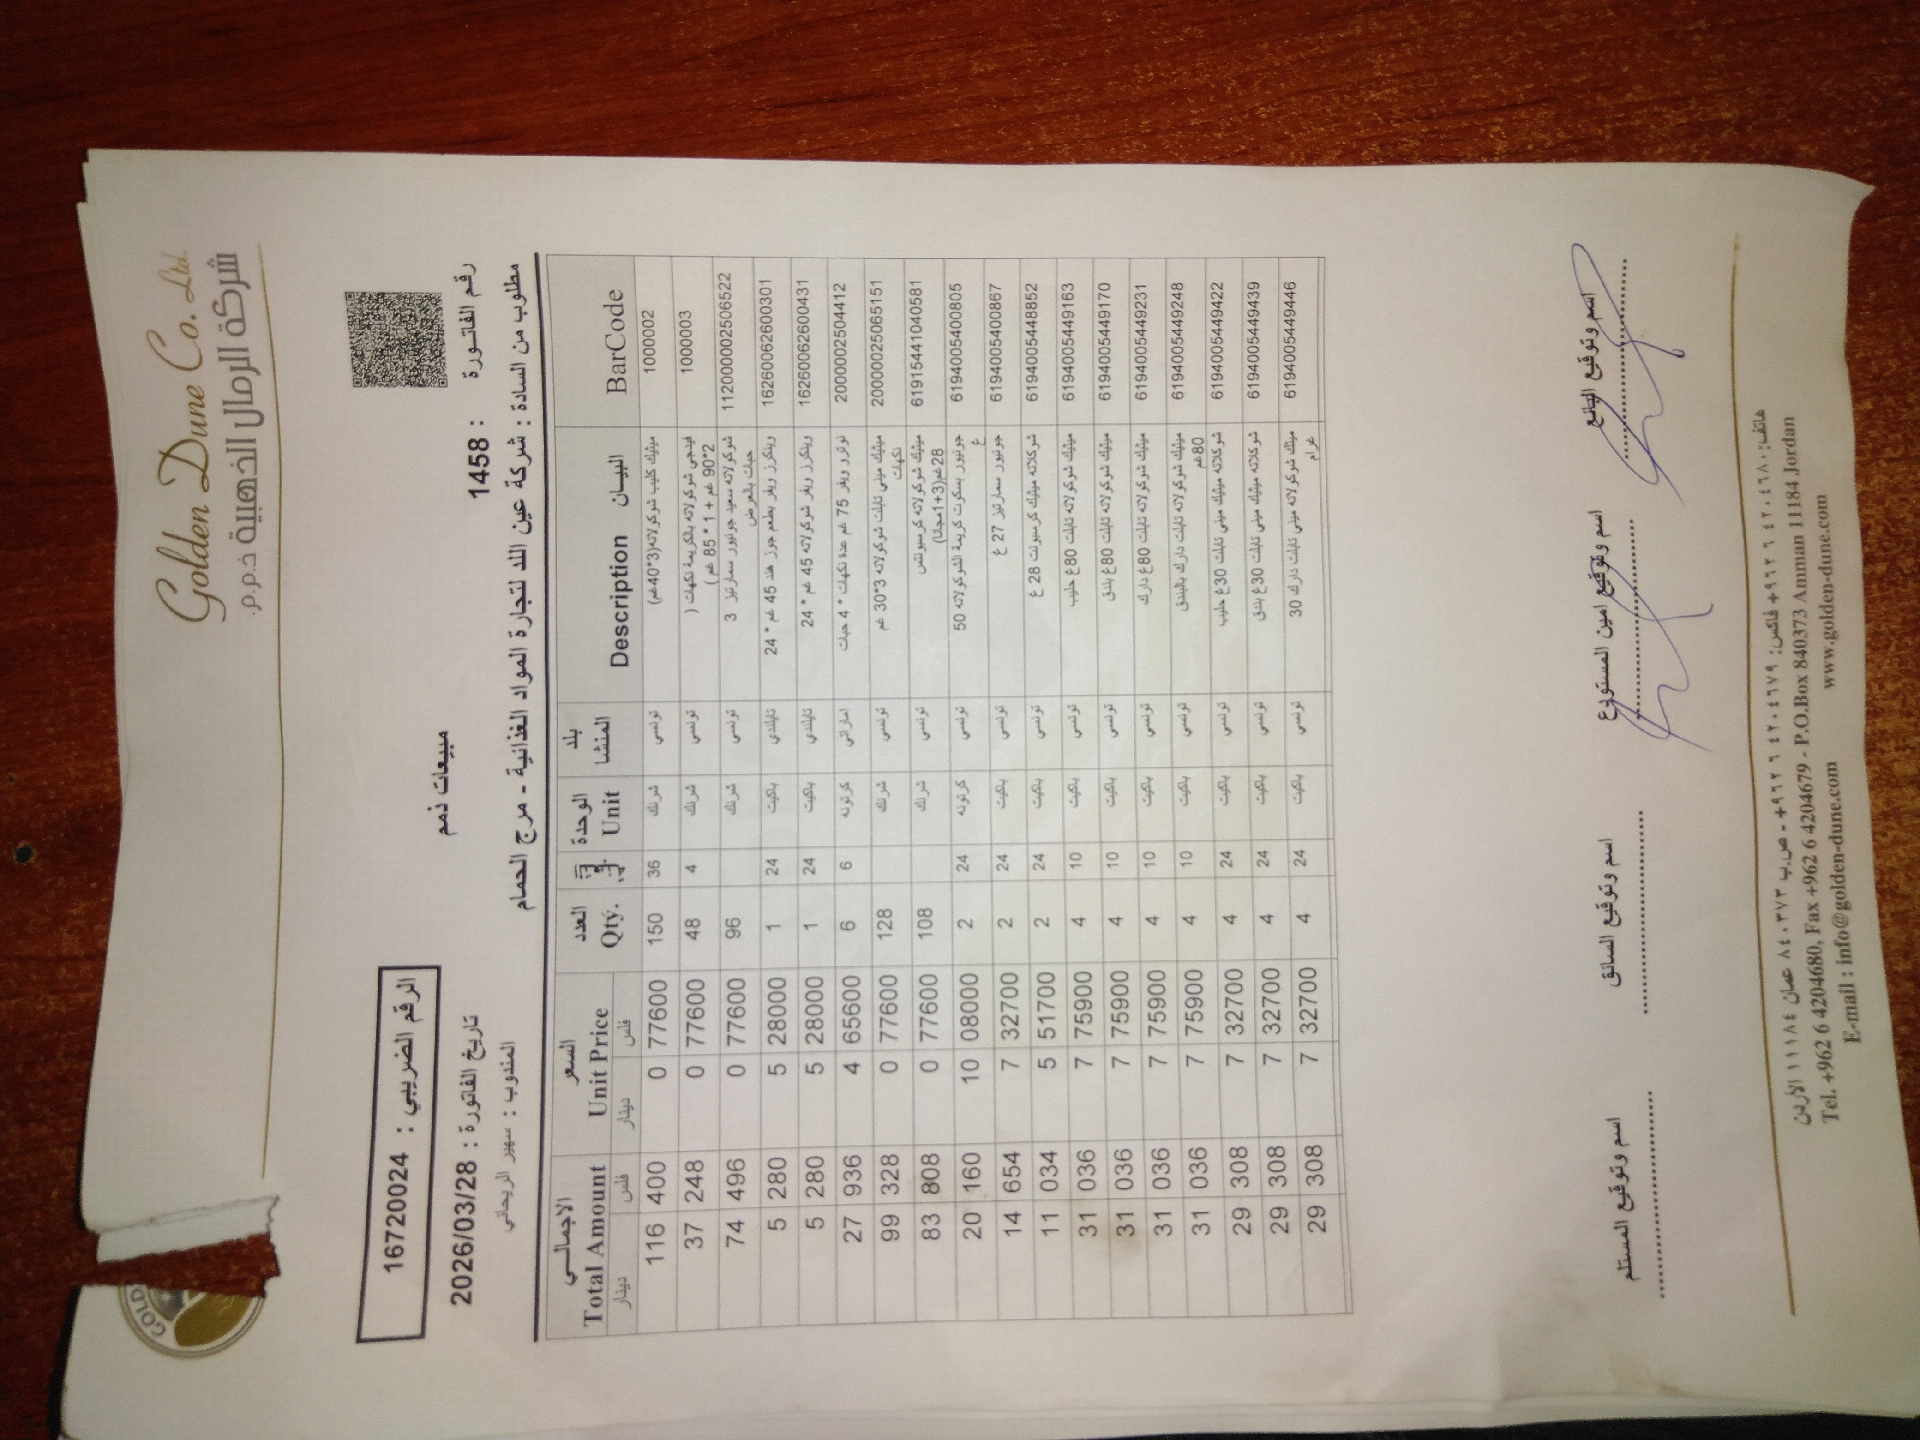 Golden Dune Co. Ltd.
شركة الرمال الذهبية ذ.م.م.
GOLD
الرقم الضريبي : 16720024
مبيعات ذمم
رقم الفاتورة : 1458
تاريخ الفاتورة : 2026/03/28
مطلوب من السادة : شركة عين اللد لتجارة المواد الغذائية - مرج الحمام
المندوب : سهير الريحاني
الاجمالي السعر العدد الوحدة بلد المنشا البيان
Total Amount Unit Price Qty. Unit Description BarCode
دينار فلس دينار فلس
116 400 0 77600 150 36 شرنك تونسي ميتيك كليب شوكولاته(3*40غم) 1000002
37 248 0 77600 48 4 شرنك تونسي فيدجي شوكولاته بالكريمة نكهات ( 2*90 غم + 1 * 85 غم ) 1000003
74 496 0 77600 96 شرنك تونسي شوكولاته سعيد جونيور سمارتيز 3 حبات بالعرض 1120000002506522
5 280 5 28000 1 24 باكيت تايلندي وينكرز ويفر بطعم جوز هند 45 غم * 24 1626006260030​1
5 280 5 28000 1 24 باكيت تايلندي وينكرز ويفر شوكولاته 45 غم * 24 16260062600431
27 936 4 65600 6 6 كرتونه اماراتي نوترو ويفر 75 غم عدة نكهات * 4 حبات 2000002504412
99 328 0 77600 128 شرنك تونسي ميتيك ميني تابلت شوكولاته 3*30 غم نكهات 20000025065151
83 808 0 77600 108 شرنك تونسي ميتيك شوكولاته كرسبونتس 28غم(3+1مجانا) 6191544104058​1
20 160 10 08000 2 24 كرتونه تونسي جونيور بسكوت كريمة الشوكولاته 50 غ 6194005400805
14 654 7 32700 2 24 باكيت تونسي جونيور سمارتيز 27 غ 6194005400867
11 034 5 51700 2 24 باكيت تونسي شوكلاته ميتيك كرسبونت 28 غ 6194005448852
31 036 7 75900 4 10 باكيت تونسي ميتيك شوكولاته تابلت 80غ حليب 6194005449163
31 036 7 75900 4 10 باكيت تونسي ميتيك شوكولاته تابلت 80غ بندق 6194005449170
31 036 7 75900 4 10 باكيت تونسي ميتيك شوكولاته تابلت 80غ دارك 6194005449231
31 036 7 75900 4 10 باكيت تونسي ميتيك شوكولاته تابلت دارك بالبندق 80غم 6194005449248
29 308 7 32700 4 24 باكيت تونسي شوكلاته ميتيك ميني تابلت 30غ حليب 6194005449422
29 308 7 32700 4 24 باكيت تونسي شوكلاته ميتيك ميني تابلت 30غ بندق 6194005449439
29 308 7 32700 4 24 باكيت تونسي ميتك شوكولاته ميني تابلت دارك 30 غرام 6194005449446
اسم وتوقيع المستلم
اسم وتوقيع السائق
اسم وتوقيع امين المستودع
اسم وتوقيع البائع
هاتف: ٤٢٠٤٦٨٠ ٦ ٩٦٢+ فاكس: ٤٢٠٤٦٧٩ ٦ ٩٦٢+ - ص.ب ٨٤٠٣٧٣ عمان ١١١٨٤ الأردن
Tel. +962 6 4204680, Fax +962 6 4204679 - P.O.Box 840373 Amman 11184 Jordan
E-mail : info@golden-dune.com www.golden-dune.com